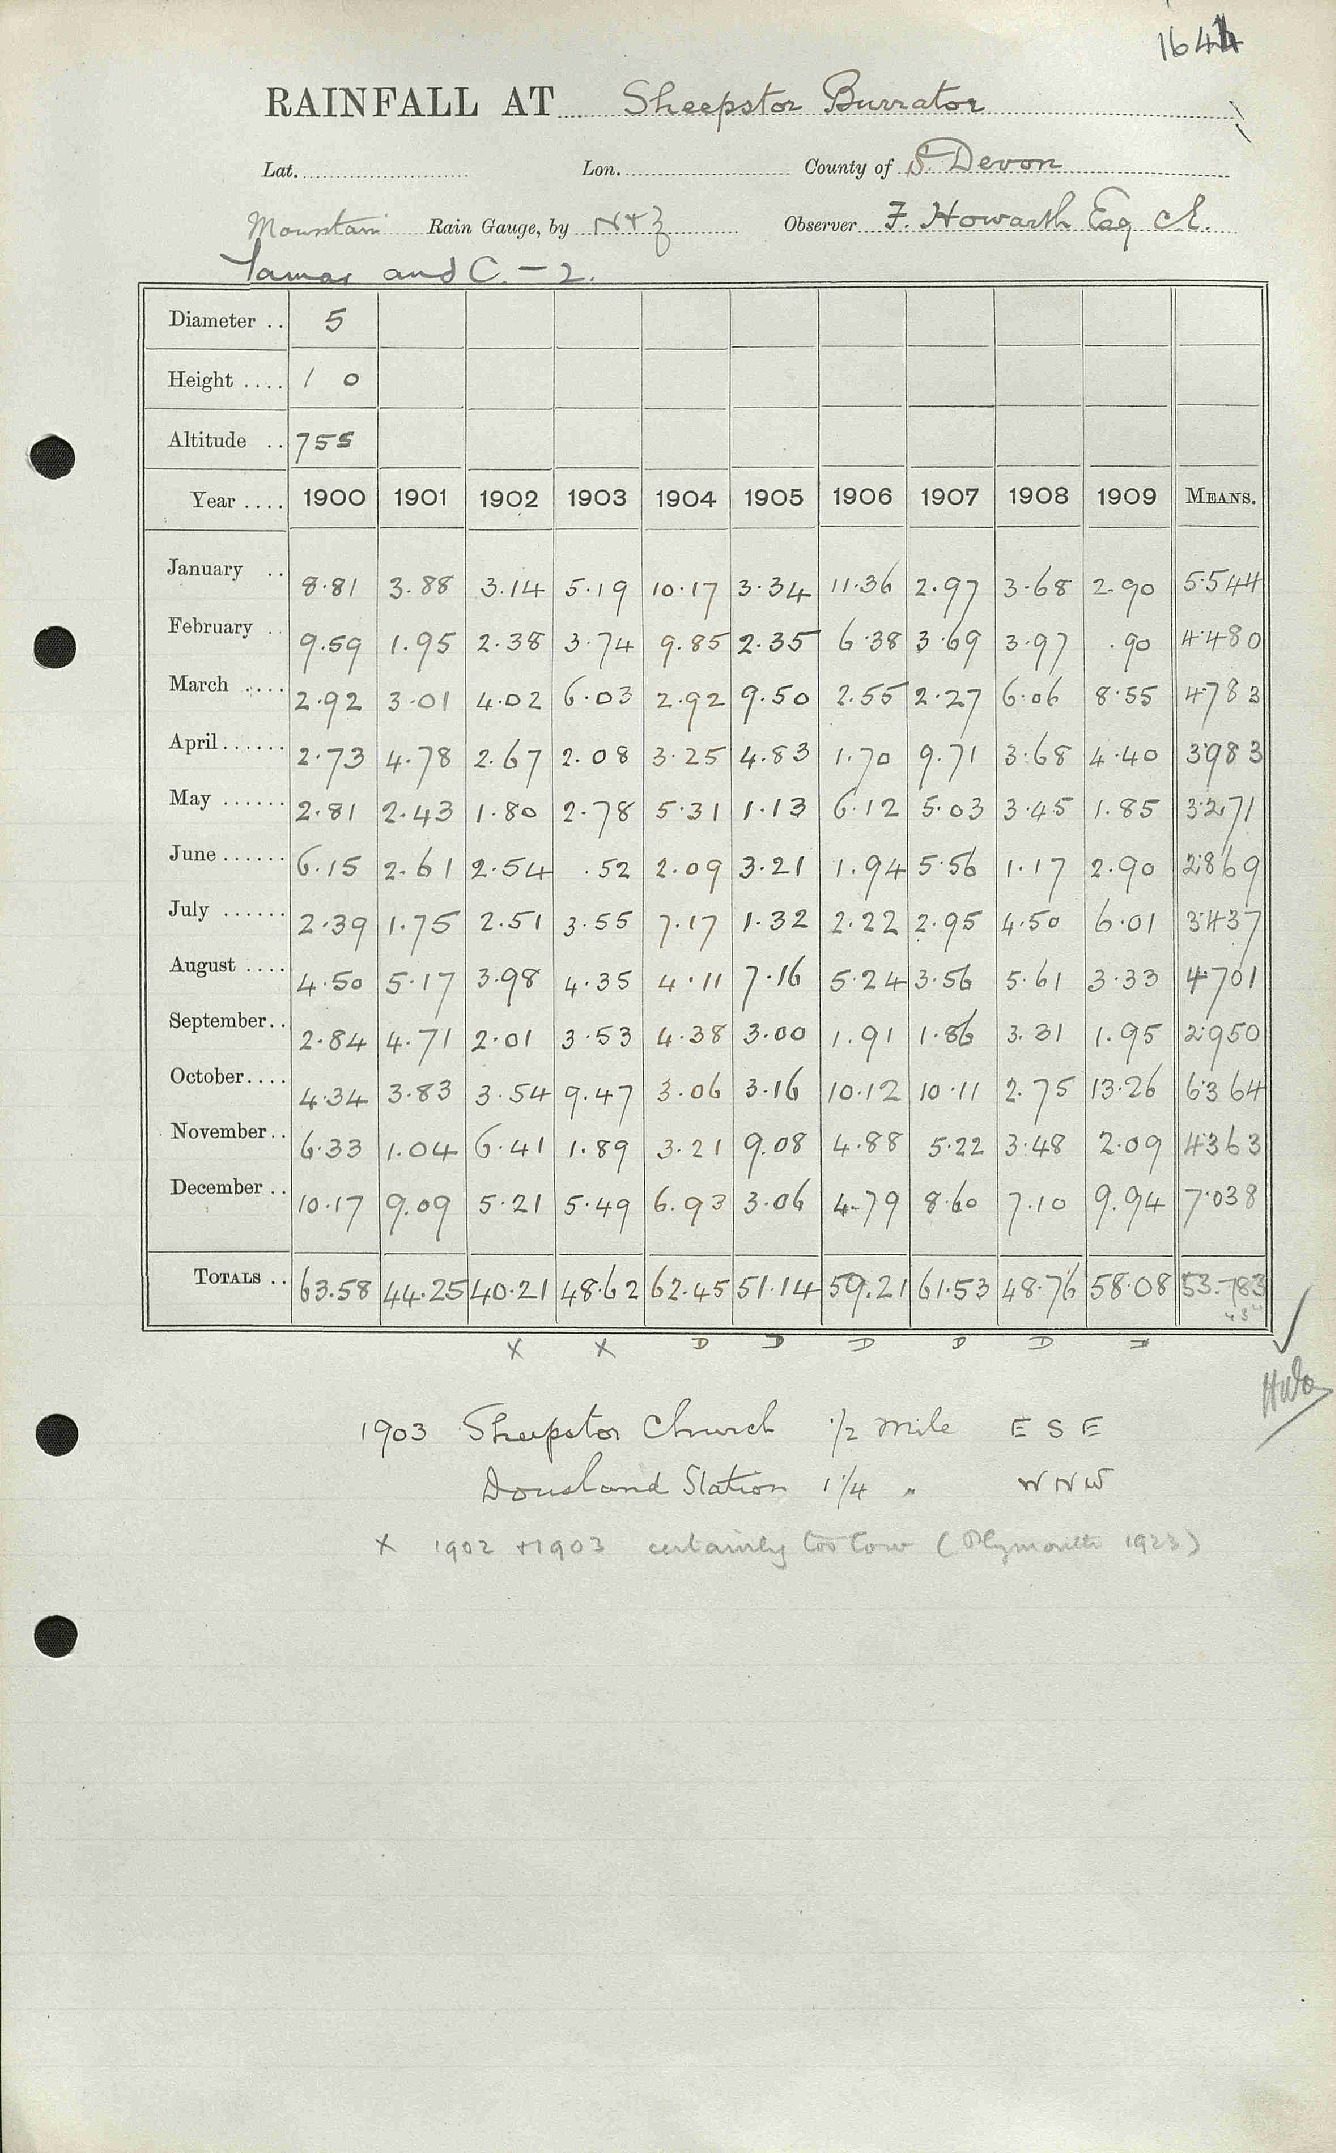 1644
RAINFALL AT Sheepstor Burrator
Lat. Lon. County of S. Devon
Mountain Rain Gauge, by N & Z Observer F. Howarth Esq C.E.
Tamar and C. - 2.
Diameter .. 5
Height .... 1 0
Altitude .. 755
Year .... 1900 1901 1902 1903 1904 1905 1906 1907 1908 1909 MEANS.
January .. 8.81 3.88 3.14 5.19 10.17 3.34 11.36 2.97 3.68 2.90 5.544
February .. 9.59 1.95 2.38 3.74 9.85 2.35 6.38 3.69 3.97 .90 4.480
March .... 2.92 3.01 4.02 6.03 2.92 9.50 2.55 2.27 6.06 8.55 4.783
April...... 2.73 4.78 2.67 2.08 3.25 4.83 1.70 9.71 3.68 4.40 3.983
May ...... 2.81 2.43 1.80 2.78 5.31 1.13 6.12 5.03 3.45 1.85 3.271
June...... 6.15 2.61 2.54 .52 2.09 3.21 1.94 5.56 1.17 2.90 2.869
July ...... 2.39 1.75 2.51 3.55 7.17 1.32 2.22 2.95 4.50 6.01 3.437
August .... 4.50 5.17 3.98 4.35 4.11 7.16 5.24 3.56 5.61 3.33 4.701
September.. 2.84 4.71 2.01 3.53 4.38 3.00 1.91 1.86 3.31 1.95 2.950
October.... 4.34 3.83 3.54 9.47 3.06 3.16 10.12 10.11 2.75 13.26 6.364
November.. 6.33 1.04 6.41 1.89 3.21 9.08 4.88 5.22 3.48 2.09 4.363
December .. 10.17 9.09 5.21 5.49 6.93 3.06 4.79 8.60 7.10 9.94 7.038
TOTALS .. 63.58 44.25 40.21 48.62 62.45 51.14 59.21 61.53 48.76 58.08 53.783
X X D D D D D D
1903 Sheepstor Church 1/2 mile E S E
Dousland Station 1 1/4 " W N W
X 1902 + 1903 certainly too low (Plymouth 1923)